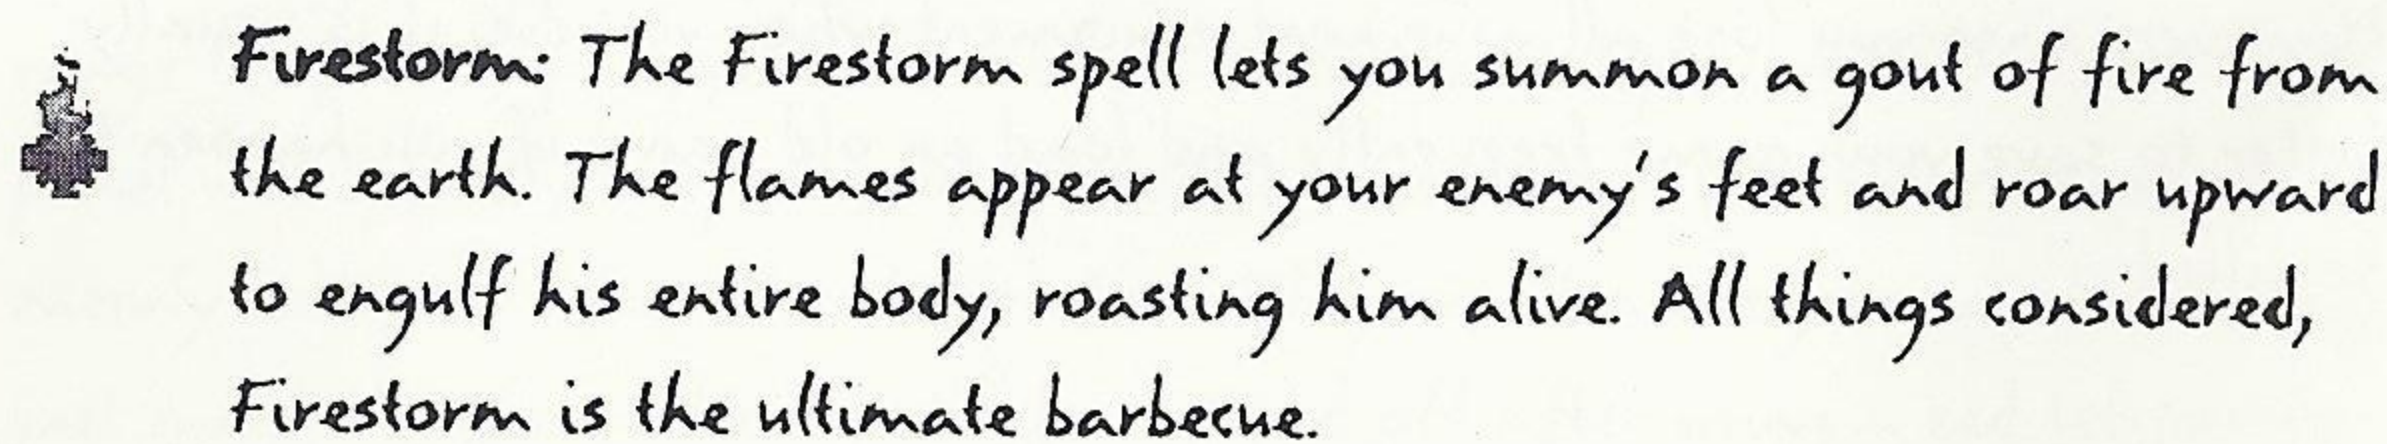 Firestorm: The Firestorm spell lets you summon a gout of fire from
the earth. The flames appear at your enemy's feet and roar upward
to engulf his entire body, roasting him alive. All things considered,
Firestorm is the ultimate barbecue.